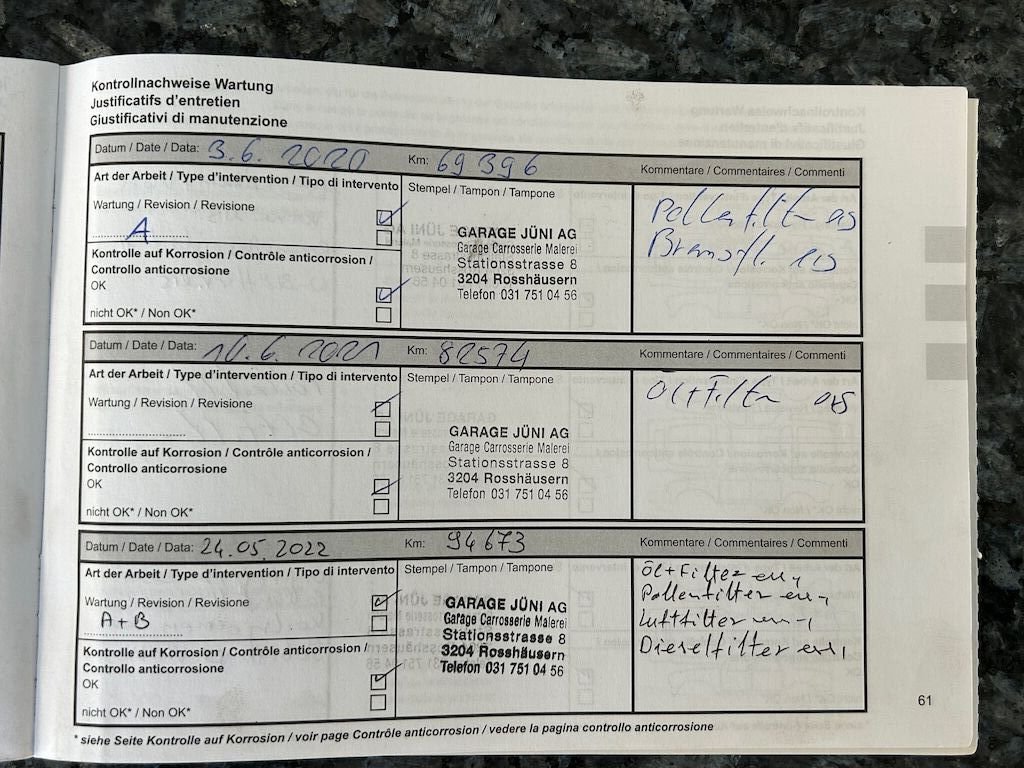 Kontrollnachweise Wartung
Justificatifs d'entretien
Giustificativi di manutenzione
Datum / Date / Data: 3.6.2020 Km: 69396 Kommentare / Commentaires / Commenti
Art der Arbeit / Type d'intervention / Tipo di intervento
Stempel / Tampon / Tampone
Wartung / Revision / Revisione
A
Kontrolle auf Korrosion / Contrôle anticorrosion /
Controllo anticorrosione
OK
nicht OK* / Non OK*
GARAGE JÜNI AG
Garage Carrosserie Malerei
Stationsstrasse 8
3204 Rosshäusern
Telefon 031 751 04 56
Pollenfilter
Bremsfl.
Datum / Date / Data: 10.6.2021 Km: 82574 Kommentare / Commentaires / Commenti
Art der Arbeit / Type d'intervention / Tipo di intervento
Stempel / Tampon / Tampone
Wartung / Revision / Revisione
Kontrolle auf Korrosion / Contrôle anticorrosion /
Controllo anticorrosione
OK
nicht OK* / Non OK*
GARAGE JÜNI AG
Garage Carrosserie Malerei
Stationsstrasse 8
3204 Rosshäusern
Telefon 031 751 04 56
Öl+Filter
Datum / Date / Data: 24.05.2022 Km: 94673 Kommentare / Commentaires / Commenti
Art der Arbeit / Type d'intervention / Tipo di intervento
Stempel / Tampon / Tampone
Wartung / Revision / Revisione
A+B
Kontrolle auf Korrosion / Contrôle anticorrosion /
Controllo anticorrosione
OK
nicht OK* / Non OK*
GARAGE JÜNI AG
Garage Carrosserie Malerei
Stationsstrasse 8
3204 Rosshäusern
Telefon 031 751 04 56
Öl+Filter
Pollenfilter
Luftfilter
Dieselfilter
* siehe Seite Kontrolle auf Korrosion / voir page Contrôle anticorrosion / vedere la pagina controllo anticorrosione
61